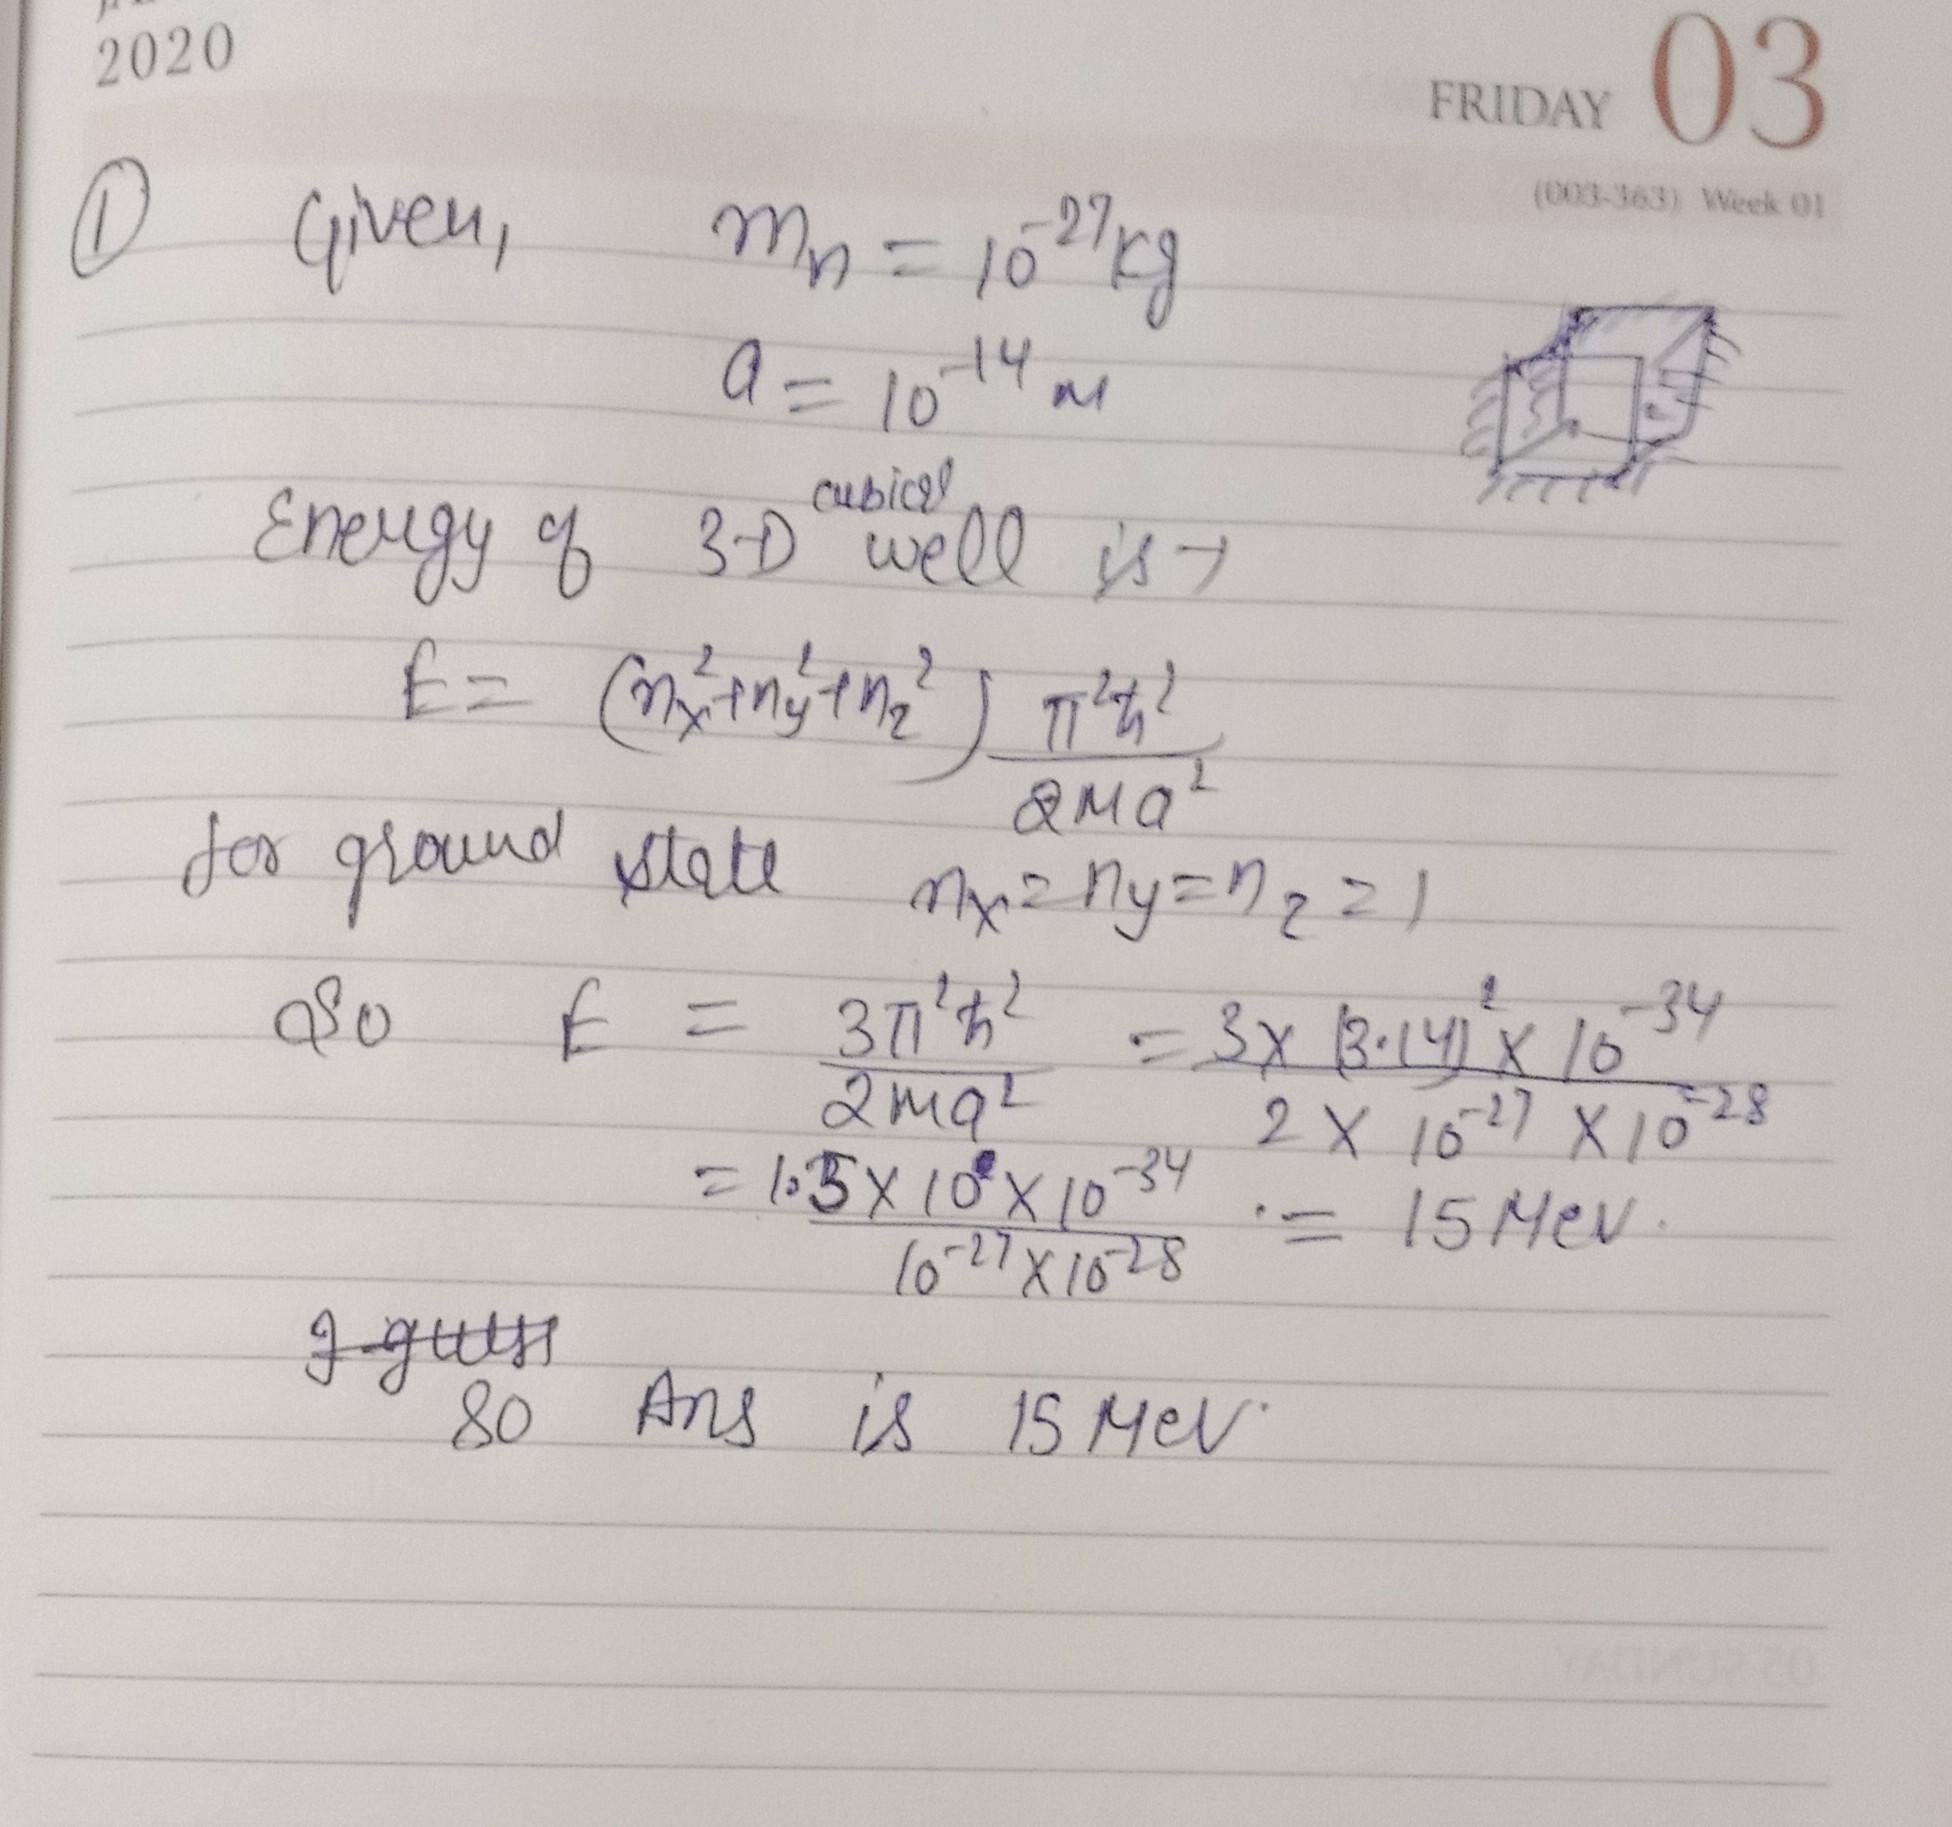 2020
FRIDAY 03
(003-363) Week 01
① Given, mₙ = 10⁻²⁷ kg
a = 10⁻¹⁴ m
cubical
Energy of 3-D well is →
E = (nₓ² + n_y² + n_z²) π²ħ² / 2ma²
for ground state nₓ = n_y = n_z = 1
So E = 3π²ħ² / 2ma² = 3 × (3.14)² × 10⁻³⁴ / 2 × 10⁻²⁷ × 10⁻²⁸
= 1.5 × 10 × 10⁻³⁴ / 10⁻²⁷ × 10⁻²⁸ = 15 Mev.
So Ans is 15 Mev.
05 SUNDAY